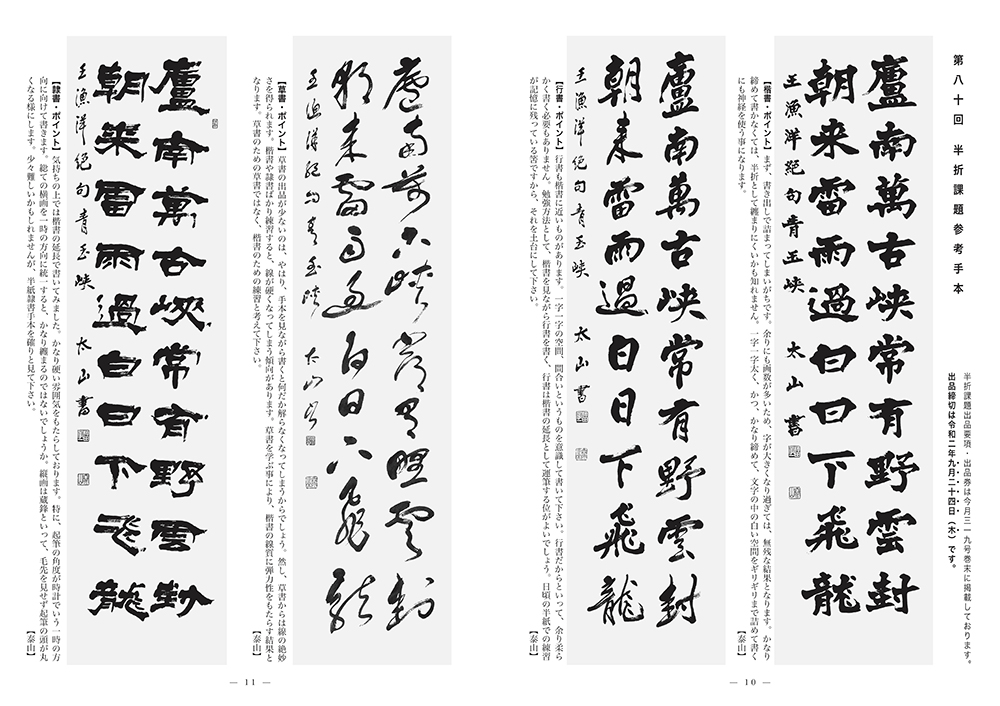 第八十回　半折課題参考手本
半折課題出品要項・出品券は今月三一九号巻末に掲載しております。
出品締切は令和二年九月二十四日（木）です。
廬南萬古峡常有野雲封
朝来雷雨過白日下飛龍
王漁洋絶句青玉峡　太山書
【楷書・ポイント】まず、書き出しで詰まってしまいがちです。余りにも画数が多いため、字が大きくなり過ぎては、無残な結果となります。かなり
締めて書かなくては、半折として纏まりにくいかも知れません。一字一字太く、かつ、かなり締めて、文字の中の白い空間をギリギリまで詰めて書く
にも神経を使う事になります。【泰山】
廬南萬古峡常有野雲封
朝来雷雨過白日下飛龍
王漁洋絶句青玉峡　太山書
【行書・ポイント】行書も楷書に近いものがあります。一字一字の空間、間合いというものを意識して書いて下さい。行書だからといって、余り柔ら
かく書く必要もありません。勉強方法として、楷書を見ながら行書を書く、行書は楷書の延長として運筆する位がよいでしょう。日頃の半紙での練習
が記憶に残っている筈ですから、それを土台にして下さい。【泰山】
— 10 —
廬南萬古峡常有野雲封
朝来雷雨過白日下飛龍
王漁洋絶句青玉峡　太山書
【草書・ポイント】草書の出品が少ないのは、やはり、手本を見ながら書くと何だか解らなくなってしまうからでしょう。然し、草書からは線の絶妙
さを得られます。楷書や隷書ばかり練習すると、線が硬くなってしまう傾向があります。草書を学ぶ事により、楷書の線質に弾力性をもたらす結果と
なります。草書のための草書ではなく、楷書のための練習と考えて下さい。【泰山】
廬南萬古峡常有野雲封
朝来雷雨過白日下飛龍
王漁洋絶句青玉峡　太山書
【隷書・ポイント】気持ちの上では楷書の延長で書いてみました。かなり硬い雰囲気をもたらしております。特に、起筆の角度が時計でいう一時の方
向に向けて書きます。総ての横画を一時の方向に統一すると、かなり纏まるのではないでしょうか。縦画は蔵鋒といって、毛先を見せず起筆の頭が丸
くなる様にします。少々難しいかもしれませんが、半紙隷書手本を確りと見て下さい。【泰山】
— 11 —